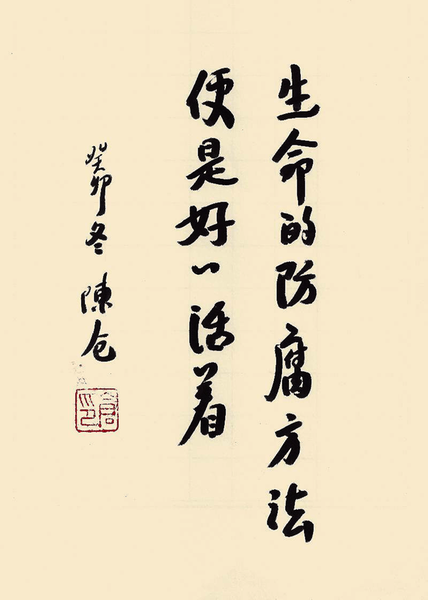 生命的防腐方法
便是好〻活着
癸卯冬 陳仓